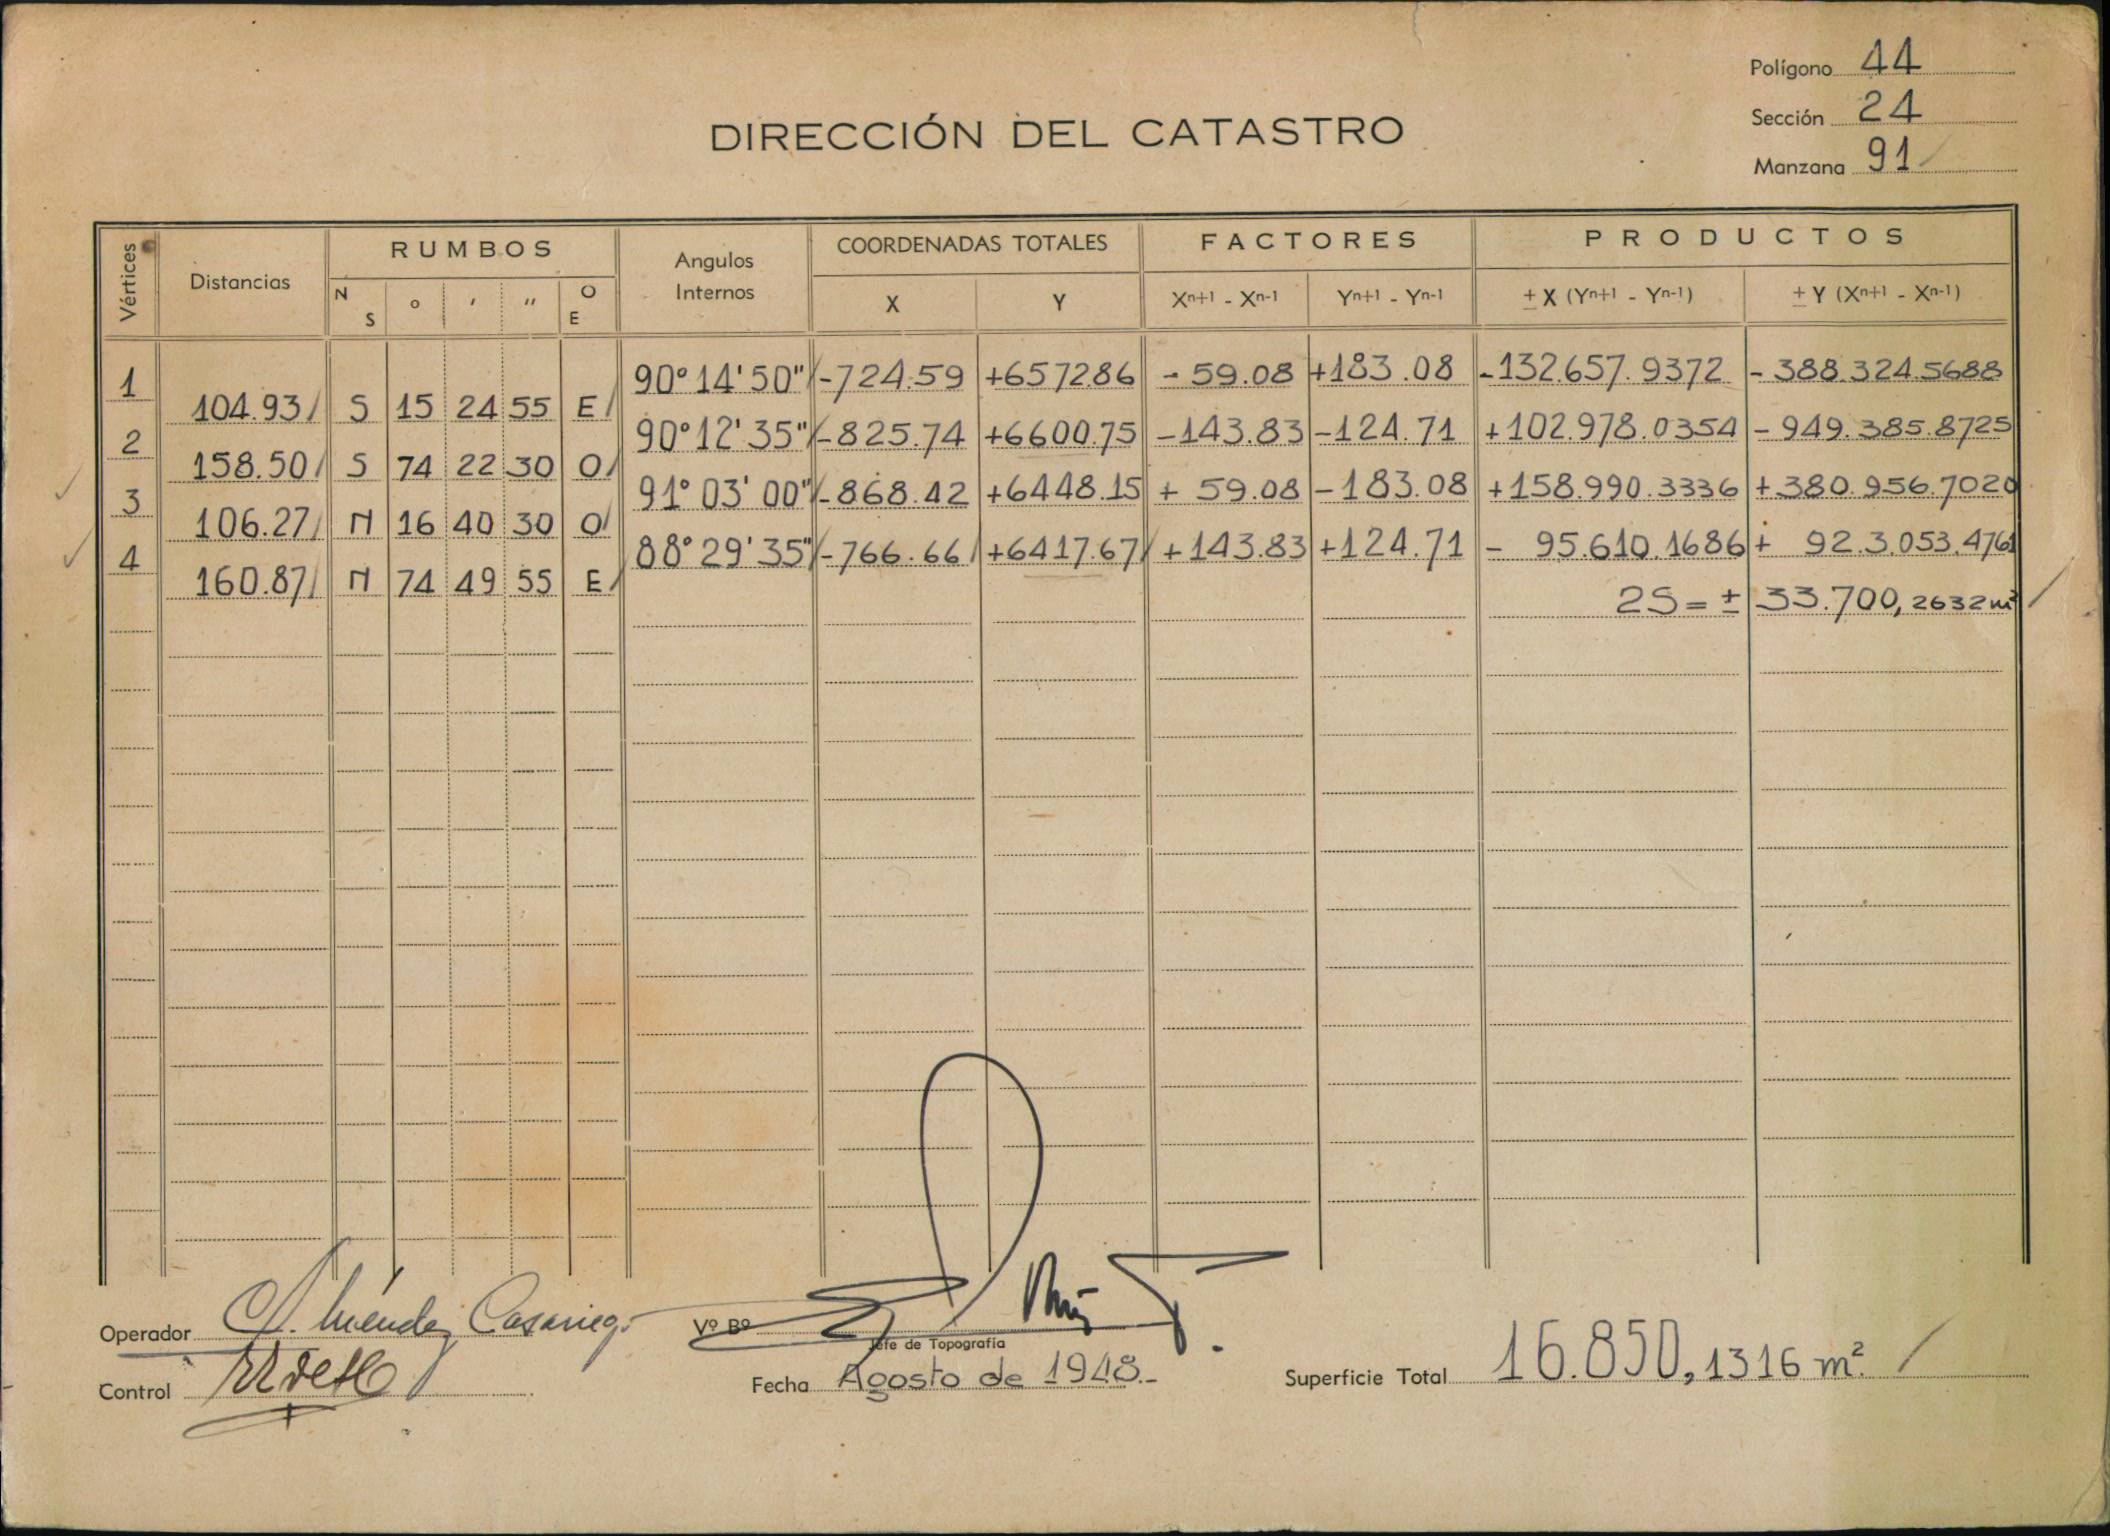 Polígono 44
Sección 24
Manzana 91
DIRECCIÓN DEL CATASTRO
Vértices Distancias RUMBOS Angulos Internos COORDENADAS TOTALES FACTORES PRODUCTOS
N S ° ' " O E X Y Xⁿ⁺¹ - Xⁿ⁻¹ Yⁿ⁺¹ - Yⁿ⁻¹ ± X (Yⁿ⁺¹ - Yⁿ⁻¹) ± Y (Xⁿ⁺¹ - Xⁿ⁻¹)
1 90° 14' 50" -724.59 +6572.86 - 59.08 +183.08 -132.657.9372 - 388.324.5688
104.93 S 15 24 55 E
2 90° 12' 35" -825.74 +6600.75 -143.83 -124.71 +102.978.0354 - 949.385.8725
158.50 S 74 22 30 O
3 91° 03' 00" -868.42 +6448.15 + 59.08 -183.08 +158.990.3336 +380.956.7020
106.27 N 16 40 30 O
4 88° 29' 35" -766.66 +6417.67 +143.83 +124.71 - 95.610.1686 + 92.3.053.4761
160.87 N 74 49 55 E
2S = ± 33.700,2632 m²
Operador A. Méndez Casariego
Vº Bº
Jefe de Topografía
Control
Fecha Agosto de 1948.-
Superficie Total 16.850,1316 m².